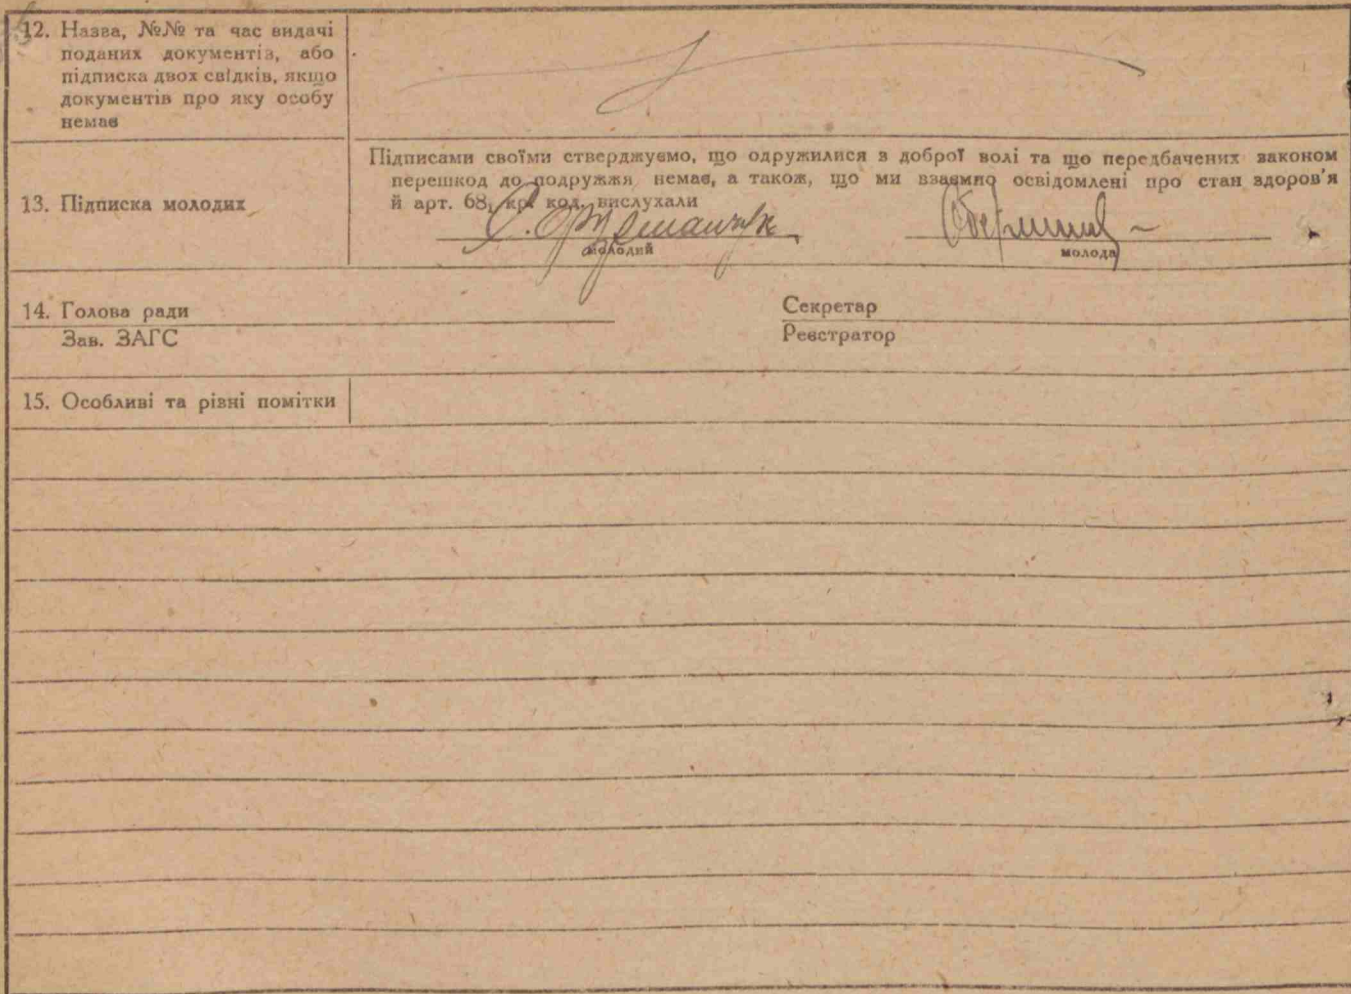 12. Назва, №№ та час видачі
поданих документів, або
підписка двох свідків, якщо
документів про яку особу
немає
Підписами своїми стверджуємо, що одружилися з доброї волі та що передбачених законом
перешкод до подружжя немає, а також, що ми взаємно освідомлені про стан здоров'я
й арт. 68, кр. код. вислухали
13. Підписка молодих
молодий
молода
14. Голова ради
Секретар
Зав. ЗАГС
Реєстратор
15. Особливі та різні помітки